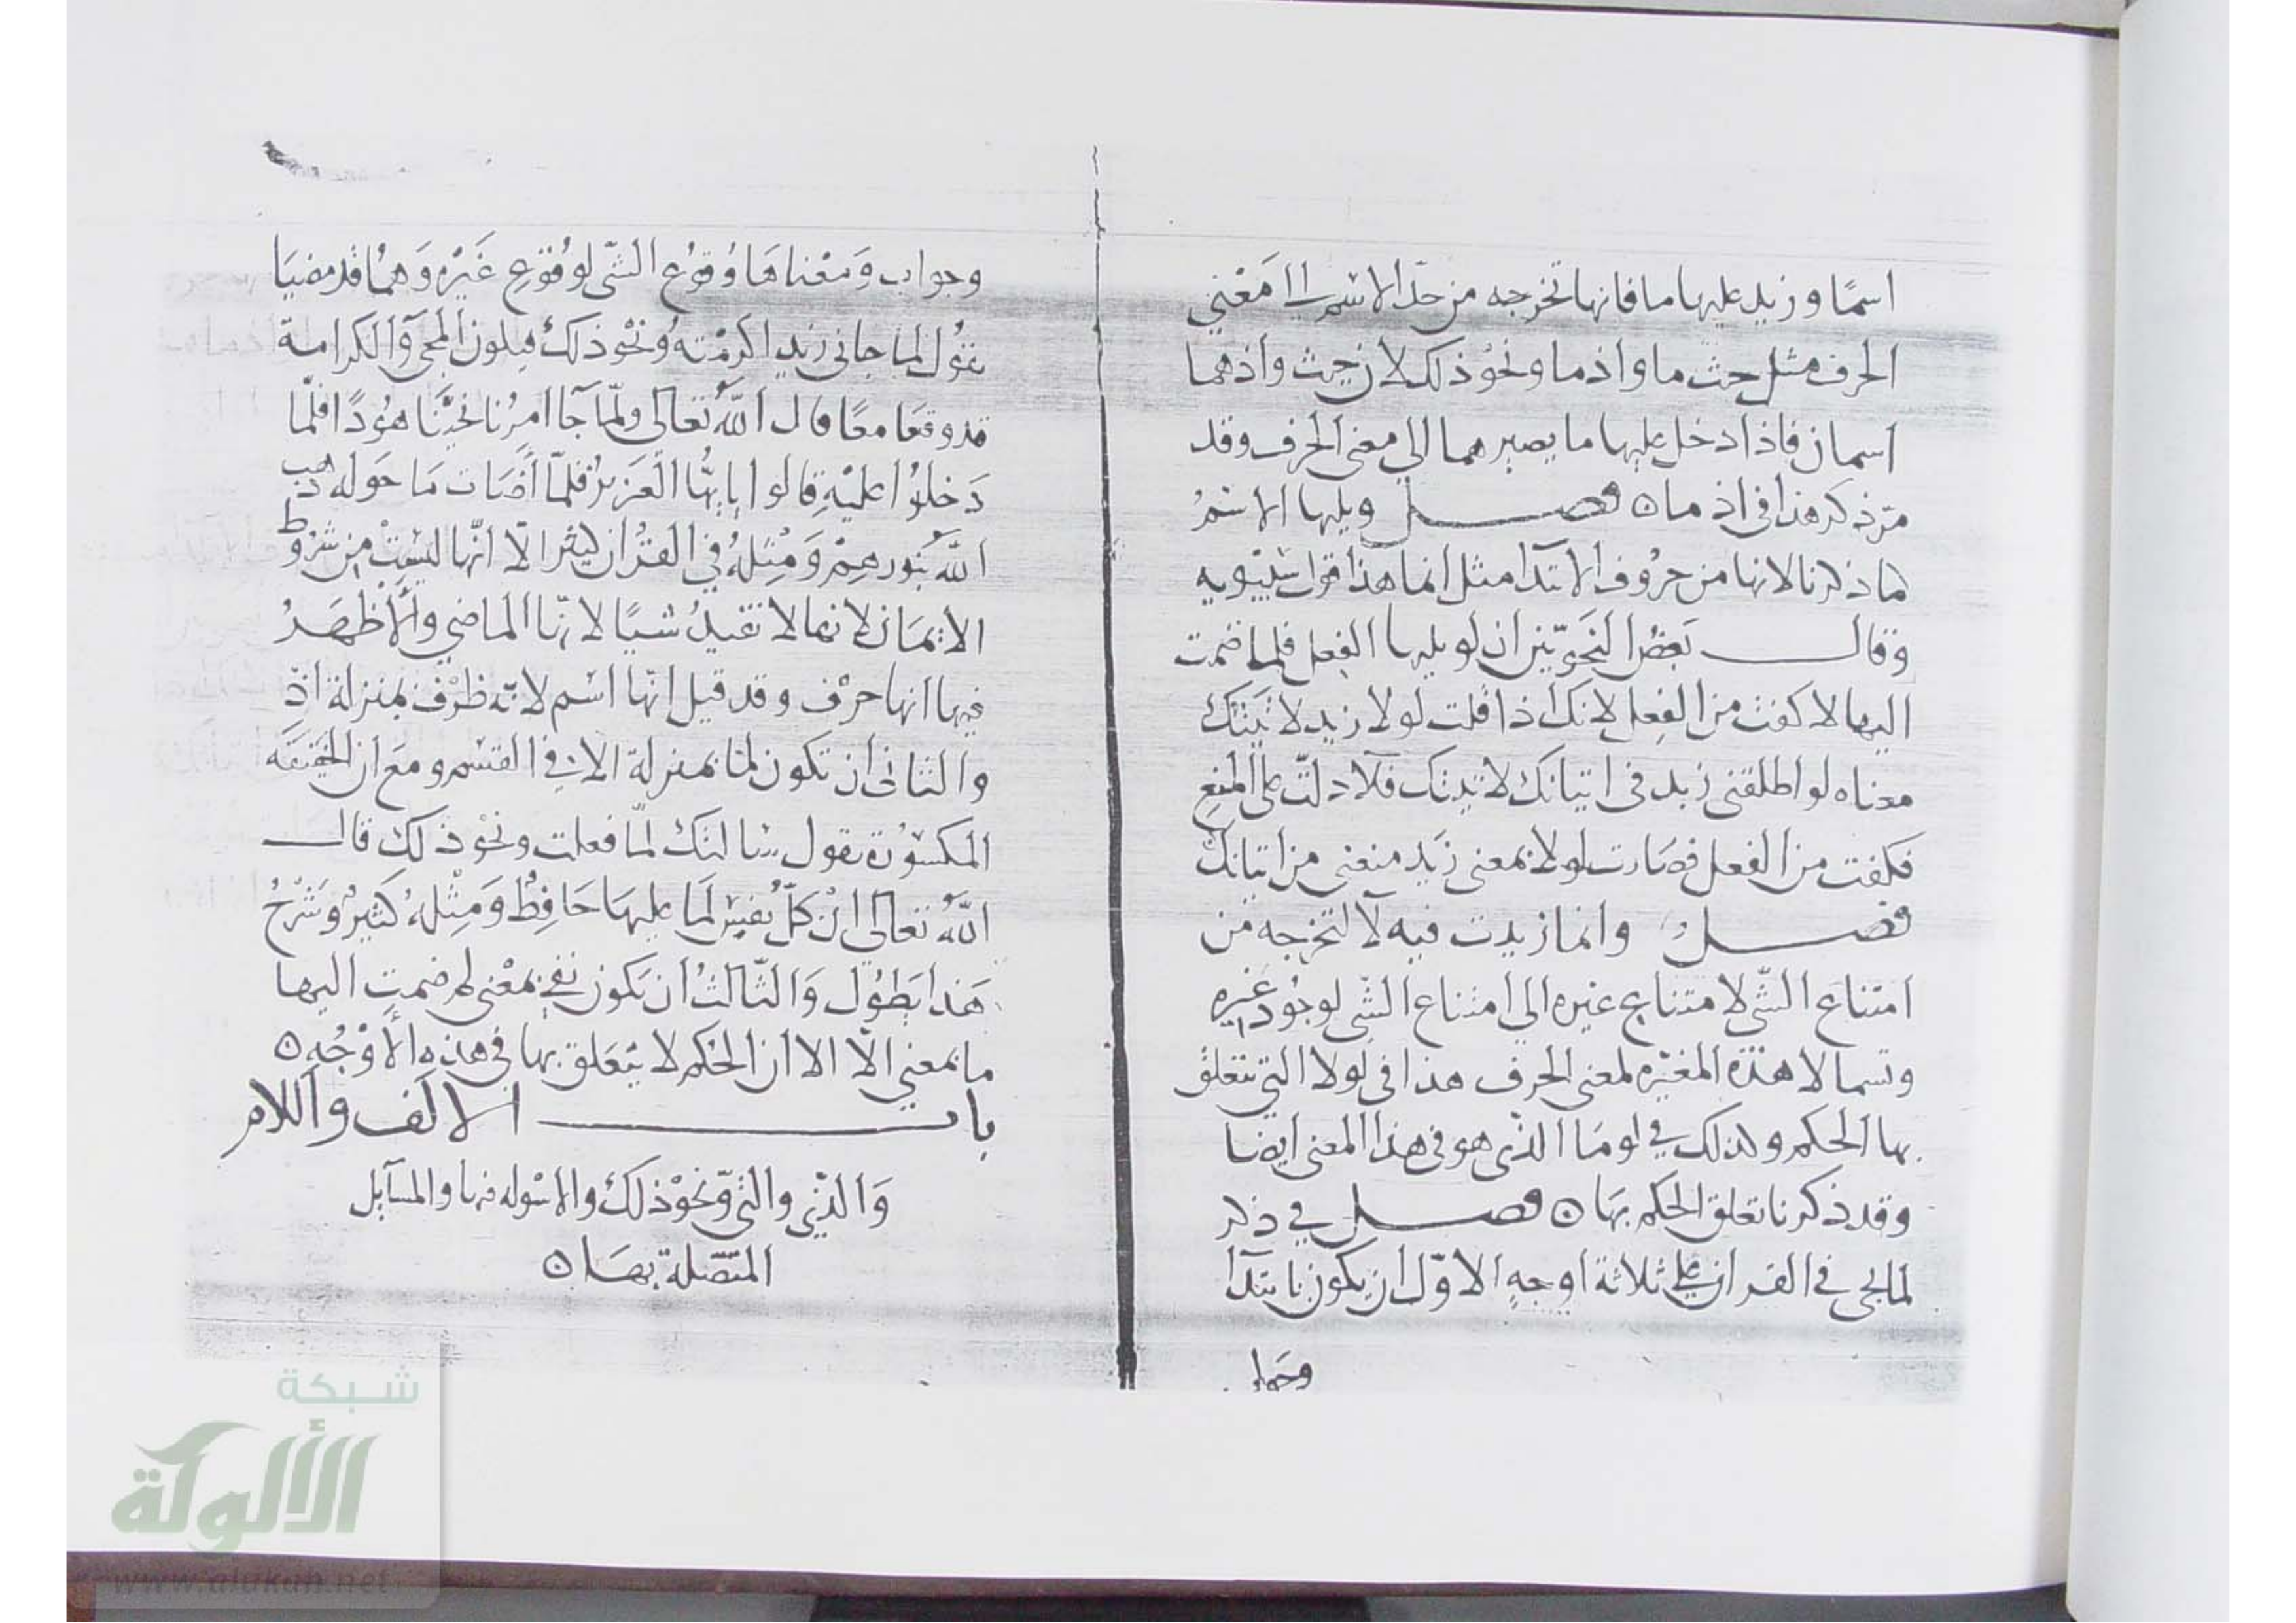 اسمًا وزيد عليها ما فانها تخرجه من حدّ الاسم الى مَعْنى
الحرف مثل حيث ما واذما ونحو ذلك لان حيث واذ هما
اسمان فاذا دخل عليها ما يصير هما الى معنى الحرف وقد
مرّ ذكر هذا فى اذ ما ه فصل ويليها الاسمُ
لما ذكرنا لانها من حروف الابتدآ مثل انما هذا قول سيبويه
وقال بَعْضُ النحويّين ان لو يليها الفِعل فلما ضمت
اليها لا كفت من الفِعل لانك اذا قلت لولا زيد لاتيتك
معناه لو اطلقنى زيد فى اتيانك لاتيتك فلا دلّت على المنع
فكفت من الفعل فصارت لولا بمعنى زيد منعنى من اتيانك
فصل وانما زيدت فيه لا لتخرجه من
امتناع الشّى لامتناع غيره الى امتناع الشّى لوجُود غيره
وتسما لا هذه المغيّره لمعنى الحرف هذا فى لولا التى تتعلق
بها الحكم وكذلك في لومَا الذى هو فى هذا المعنى ايضا
وقد ذكرنا تعلق الحكم بهَا ه فصل في ذكر
لما يجى فى القران على ثلاثة اوجهٍ الاوّل ان يكون بابتدآ
وجواب
وجواب وَمعْناهَا وُقوُع الشّى لوُقوُعِ غَيْره وَهمُا قد مضيَا
تقوُل لما جانى زيد اكرمْته وُنحْو ذلكَ فيكون المجى وَالكرامة
قد وقعَا معًا قال اللهُ تعَالى ولمّا جَآ امرُنا نجيْنَا هُودًا فلمّا
دَخلوُا عليْهِ قالوا يا ايهُّا العَزيزُ فلمّا اضَات مَا حَوله ذهب
اللهُ بنُورهِمْ وَمِثلهُ في القرُان كثير الا انّها ليسَتْ من شرُوط
الايمَان لانها لا تفيدُ شيًا لانّها الماضي والاظهَرُ
فيها انها حرْف وقد قيل انّها اسْم لانّه ظرْف بمنزلة اذْ
والثانى ان تكون لما بمنزلة الا فى القسَم ومعَ ان الخفيَفة
المكسوُرة تقول سَالتكَ لمّا فعلت ونحْو ذلك قال
اللهُ تعَالى انْ كلّ نفسٍ لمَا عليهَا حَافِظ وَمِثْلهُ كثيرٌ وَشرْحُ
هَذا يَطوُل وَالثّالثُ ان يكون نفى بمعْنى لم ضمتِ اليها
ما بمعنى الّا الا ان الحكم لا يتعَلق بها فى هذِه الأوْجُهِ ه
باب الالف واللام
وَالذّى والتى وَنحْو ذلكَ والاسْوله فيها والمسَآيل
المتّصلة بهَا ه
شبكة
الألوكة
www.alukah.net